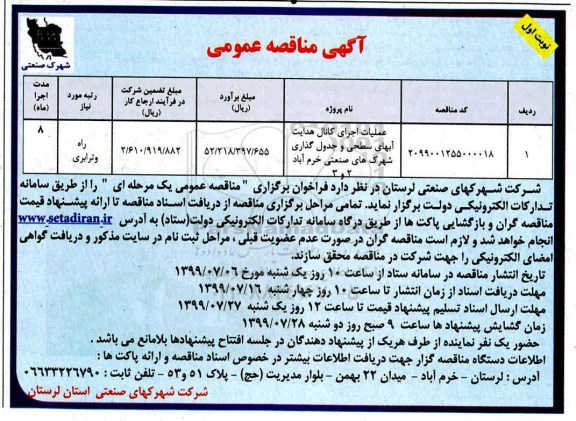 نوبت اول
آگهی مناقصه عمومی
شهرک صنعتی
ردیف
کد مناقصه
نام پروژه
مبلغ برآورد (ریال)
مبلغ تضمین شرکت در فرآیند ارجاع کار (ریال)
رتبه مورد نیاز
مدت اجرا (ماه)
۱
۲۰۹۹۰۰۱۲۵۵۰۰۰۰۱۸
عملیات اجرای کانال هدایت
آبهای سطحی و جدول گذاری
شهرک های صنعتی خرم آباد
۲ و ۳
۵۲/۲۱۸/۳۹۷/۶۵۵
۲/۶۱۰/۹۱۹/۸۸۲
راه
وترابری
۸
شرکت شهرکهای صنعتی لرستان در نظر دارد فراخوان برگزاری "مناقصه عمومی یک مرحله ای " را از طریق سامانه
تدارکات الکترونیکی دولت برگزار نماید. تمامی مراحل برگزاری مناقصه از دریافت اسناد مناقصه تا ارائه پیشنهاد قیمت
مناقصه گران و بازگشایی پاکت ها از طریق درگاه سامانه تدارکات الکترونیکی دولت(ستاد) به آدرس www.setadiran.ir
انجام خواهد شد و لازم است مناقصه گران در صورت عدم عضویت قبلی ، مراحل ثبت نام در سایت مذکور و دریافت گواهی
امضای الکترونیکی را جهت شرکت در مناقصه محقق سازند.
تاریخ انتشار مناقصه در سامانه ستاد از ساعت ۱۰ روز یک شنبه مورخ ۱۳۹۹/۰۷/۰۶
مهلت دریافت اسناد از زمان انتشار تا ساعت ۱۰ روز چهار شنبه ۱۳۹۹/۰۷/۱۶
مهلت ارسال اسناد تسلیم پیشنهاد قیمت تا ساعت ۱۲ روز یک شنبه ۱۳۹۹/۰۷/۲۷
زمان گشایش پیشنهاد ها ساعت ۹ صبح روز دو شنبه ۱۳۹۹/۰۷/۲۸
حضور یک نفر نماینده از طرف هریک از پیشنهاد دهندگان در جلسه افتتاح پیشنهادها بلامانع می باشد .
اطلاعات دستگاه مناقصه گزار جهت دریافت اطلاعات بیشتر در خصوص اسناد مناقصه و ارائه پاکت ها :
آدرس : لرستان - خرم آباد - میدان ۲۲ بهمن - بلوار مدیریت (حج) - پلاک ۵۱ و۵۳ - تلفن ثابت : ۰۶۶۳۳۲۲۶۷۹۰
شرکت شهرکهای صنعتی استان لرستان